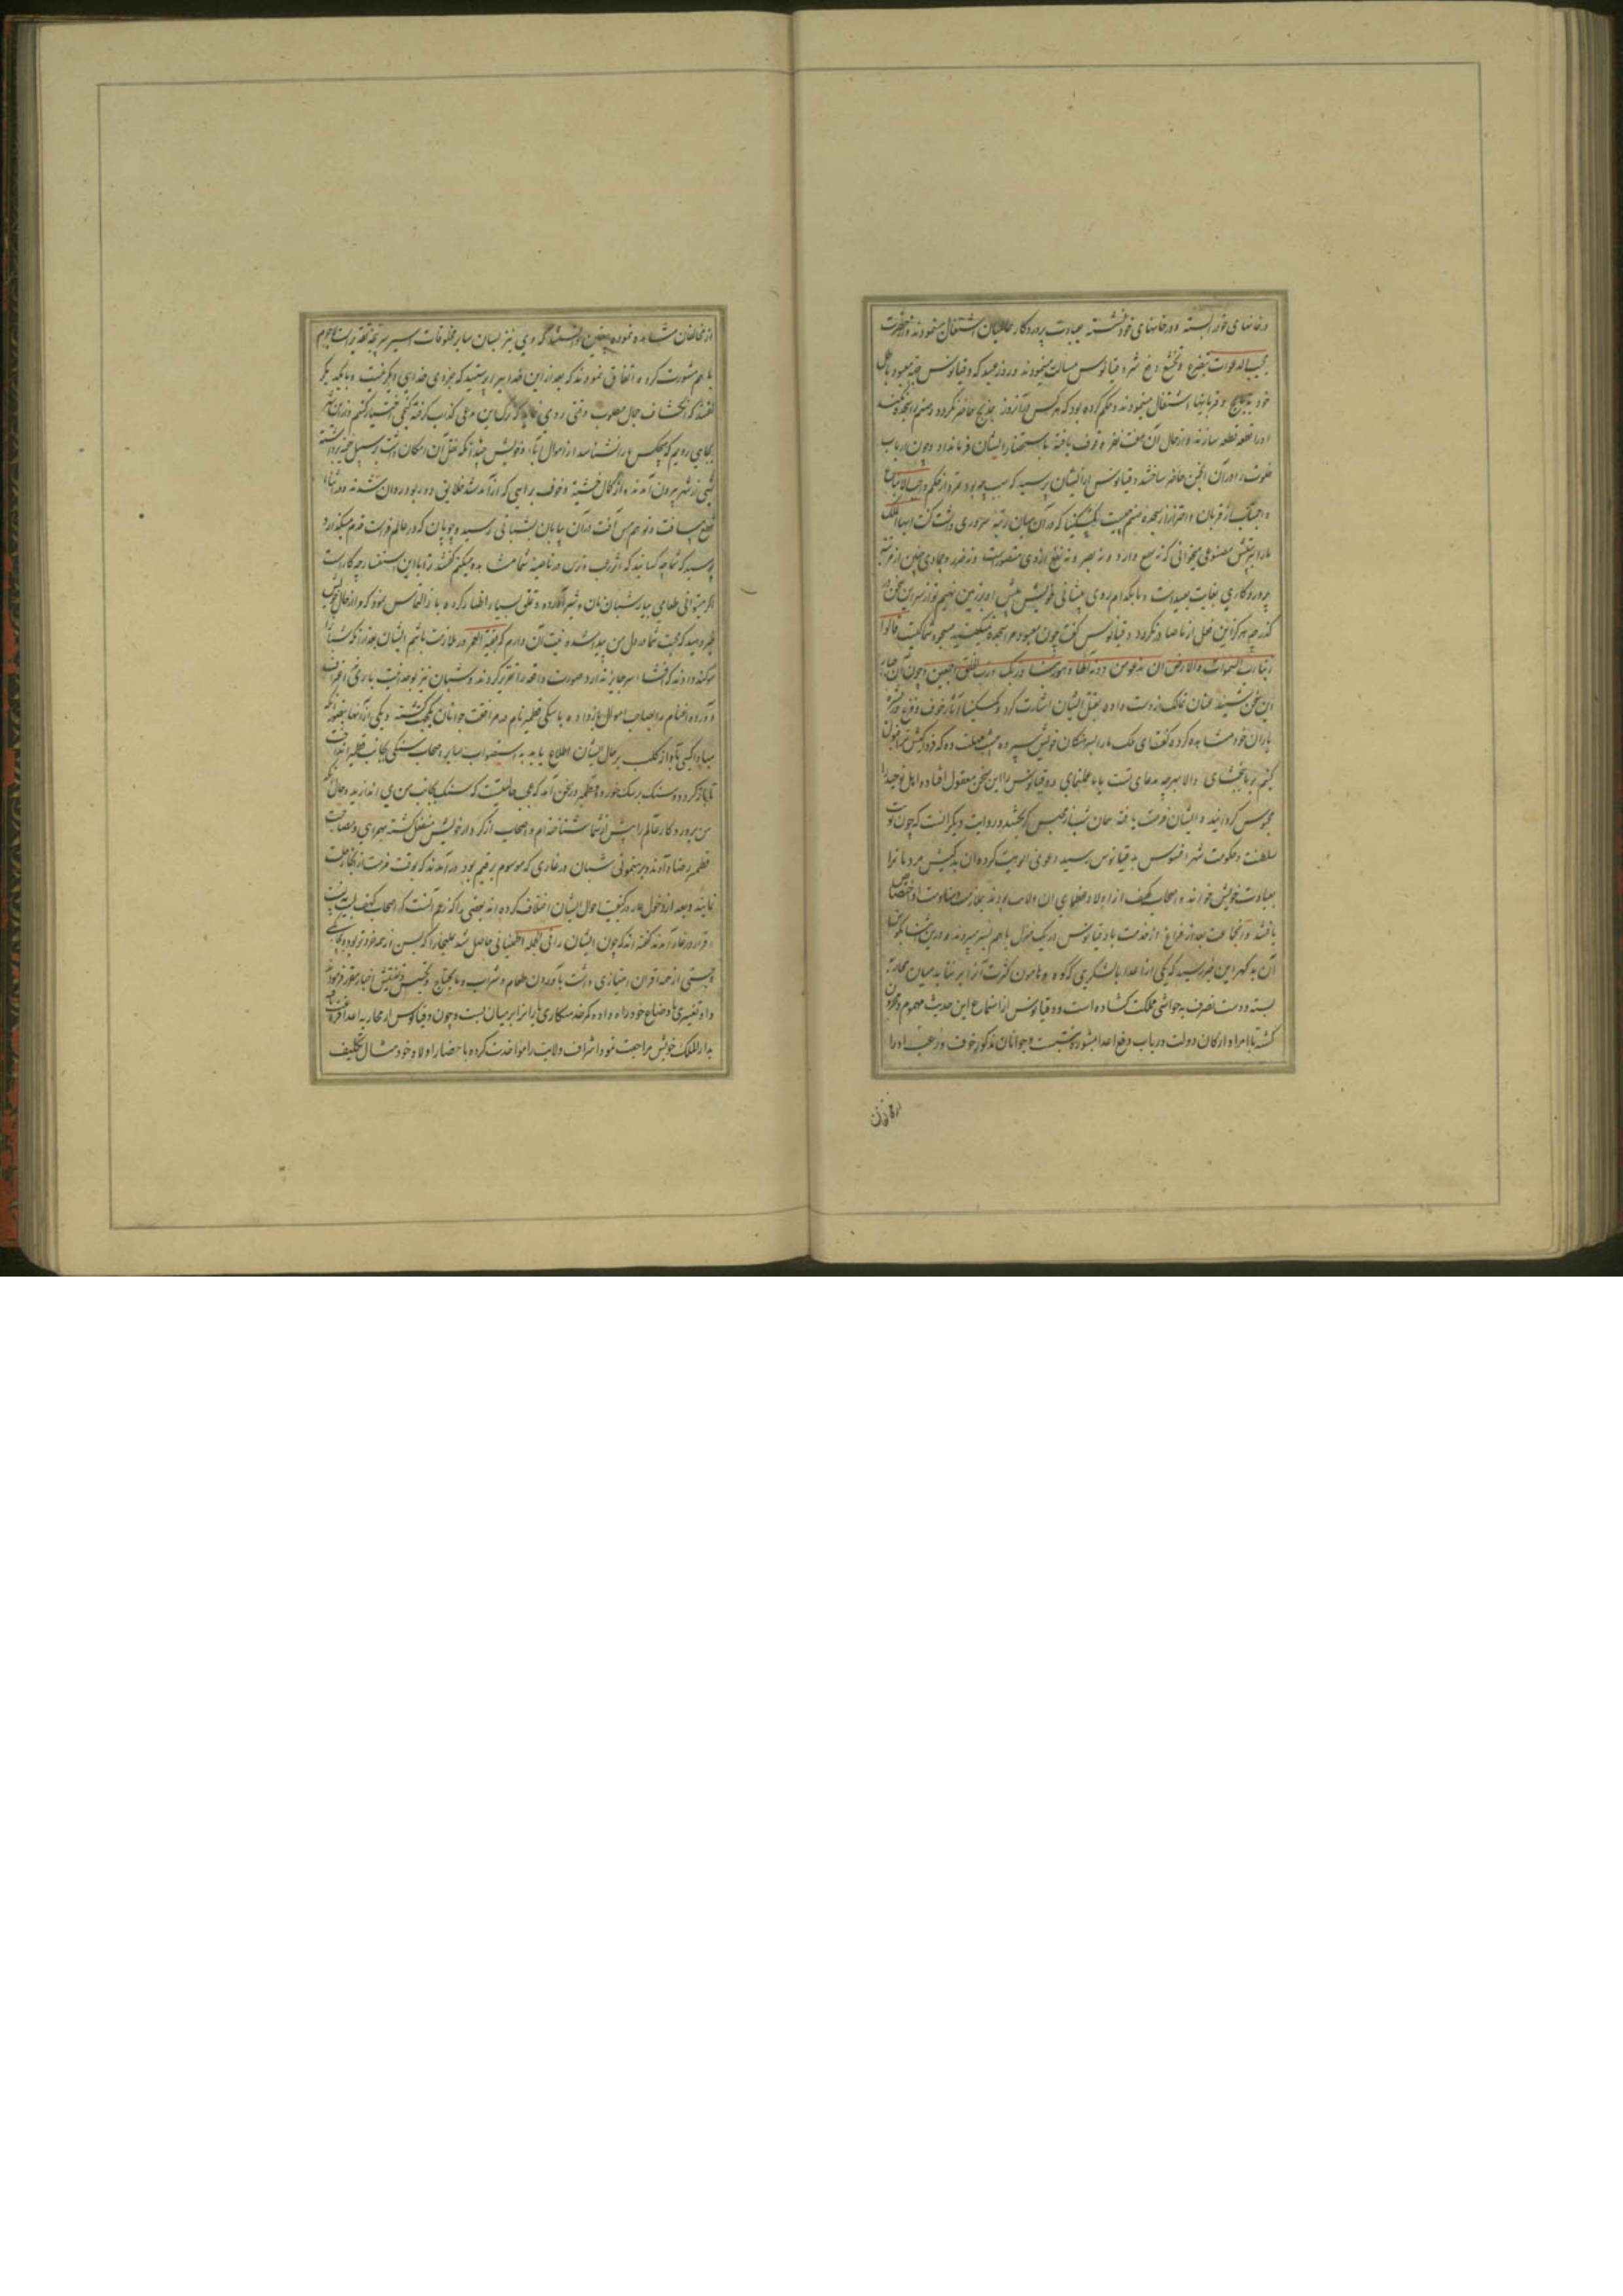 در خانهای خود بسته و در خانهای خود نشسته بعبادت پروردگار عالمیان اشتغال مینمودند و از حضرت
مجیب الدعوات بتضرع و تخشع دفع شر دقیانوس مسالت مینمودند و در روز عید که دقیانوس جهة معبود باطل
خود بذبایح و قربانیها اشتغال مینمودند و حکم کرده بود که هر کس در آنروز بمذبح حاضر نگردد و صنم را سجده نکند
او را قطعه قطعه سازند و از حال آن هفت نفر وقوف یافته باستحضار ایشان فرمان داد و چون ارباب
خلوت را در آن انجمن حاضر ساختند دقیانوس از ایشان پرسید که سبب چه بود تمرد از حکم واجب الاتباع
و اجتناب از قربان و احتراز از سجده صنم چیست یکشکینا که در آن میان رتبه سروری داشت گفت ایها الملک
ما را بپرستش مصنوعی میخوانی که نه سمع دارد و نه بصر و نه نفع از وی متصورست و نه ضرر و جمادی چنین از مرتبه
پروردگاری بغایت بعیدست و ما بکدام روی پیشانی خویش پیش او بر زمین نهیم تو از سر این سخن در
گذر چه هرگز این فعل از ما صادر نگردد دقیانوس گفت چون معبود مرا سجده نمیکنید مسجود شما کیست قالوا
ربنا رب السموات و الارض لن ندعو من دونه الها و هو ربنا و ربک و رب الخلق اجمعین و چون آن جبار
این سخن شنید عنان تمالک از دست داده بقتل ایشان اشارت کرد و یکسکینا آثار خوف و فزع در بشره
یاران خود مشاهده کرده گفت ای ملک ما را بسرهنگان خویش سپرده یک شب مهلت ده که فردا کیش ترا قبول
کنیم بر ما ببخشای و الا هر چه مدعای تست با ما عمل نمای دقیانوس را این سخن معقول افتاده اهل توحید را
محبوس گردانیده و ایشان فرصت یافته همان شب از محبس گریختند و روایت دیگر آنست که چون نوبت
سلطنت و حکومت شهر افسوس به دقیانوس رسید دعوی الوهیت کرده آن بدکیش مردمانرا
بعبادت خویش خواند و اصحاب کهف از اولاد عظمای آن ولایت بودند بملازمت و منادمت او اختصاص
یافتند و آنجماعت بعد از فراغ از خدمت با دقیانوس در یک منزل با هم بسر میبردند و درین اثنا بگوش
آن بدگهر این خبر رسید که یکی از اعدا با لشگری که کوه و هامون کثرت آنرا بر نتابد میان محاربه
بسته و دست تصرف به حواشی مملکت گشاده است و دقیانوس از استماع این حدیث مهموم و محزون
گشته با امرا و ارکان دولت در باب دفع اعدا بمشورت نشست و جوانان مذکور خوف و رعب او را
از مخالفان
از مخالفان مشاهده نموده بیقین دانستند که وی نیز بسان سایر مخلوقات اسیر سرپنجه تقدیر است لاجرم
با هم مشورت کرده اتفاق نمودند که بعد از این خدایرا پرستید که جزوی خدای دیگر نیست و با یکدیگر
گفتند که انکشاف حال مطلوب وقتی روی نماید که ترک این مدعی کذاب گرفته کنجی اختیار کنیم و از این شهر
بجایی رویم که هیچکس ما را نشناسد از اموال آباء خویش چندانکه نقل آن امکان داشت بر سبیل خفیه برداشته
شبی از شهر بیرون آمدند و از کمال خشیت و خوف براهی که از آمد شد خلایق دور بود روان شدند و در اثنای
قطع مسافت و توهم آفت در آن بیابان بشبانی رسیدند و چوپان که در عالم فراست قدم میگذارد
پرسید که شما چه کسانید که اثر رعب و ترس در ناصیه شما مشاهده میکنم گفتند ترا با این استفسار چه کار است
اگر میتوانی طعامی بیار شبان نان و شیر آورده و تملق بسیار اظهار کرده با ز التماس نمود که مرا از حال خویش
خبر دهید که محبت شما در دل من پیدا شده نیت آن دارم که بقیة العمر در ملازمت باشم ایشان بعد از آنکه شبانرا
سوگند دادند که افشاء سر جایز ندارد صورت واقعه را تقریر کردند و شبان نیز بوحدانیت باری اعتراف
آورده و اغنام را بصاحب اموال باز داده با سگی قطمیر نام در مرافقت جوانان یکجهت گشته و یکی از آنها بتصور آنکه
مبادا کسی بآواز کلب بر حال ایشان اطلاع یابد به استصواب سایر اصحاب سنگی بجانب قطمیر انداخت
تا باز گردد و سنگ بر سگ خورده قطمیر در سخن آمد که عجب حالتیست که سنگ بجانب من می اندازید و حال آنکه
من پروردگار عالم را پیش از شما شناخته ام و اصحاب از کردار خویش منفعل گشته بهمراهی و مصاحبت
قطمیر رضا دادند و برهنمونی شبان در غاری که موسوم برقیم بود در آمدند که بوقت فرصت از آنجا رحلت
نمایند و بعد از دخول غار در کیفیت احوال ایشان اختلاف کرده اند بعضی را که زعم آنست که اصحاب کهف
قرار در غار آمدند گفته اند که چون ایشان را فی الجمله اطمینانی حاصل شد یملیخا را که بسن از همه خردتر بود و بچابکی
و چستی از همه اقران امتیازی داشت بآوردن طعام و شراب و ما یحتاج و تجسس و تفتیش اخبار مقرر فرمودند
و او تغییری در اوضاع خود راه داده کمر خدمتکاری یارانرا بر میان بست و چون دقیانوس از محاربه اعدا فراغت
بدار الملک خویش مراجعت نمود اشراف ولایت را مواخذت کرده باحضار اولاد خود مثال تکلیف